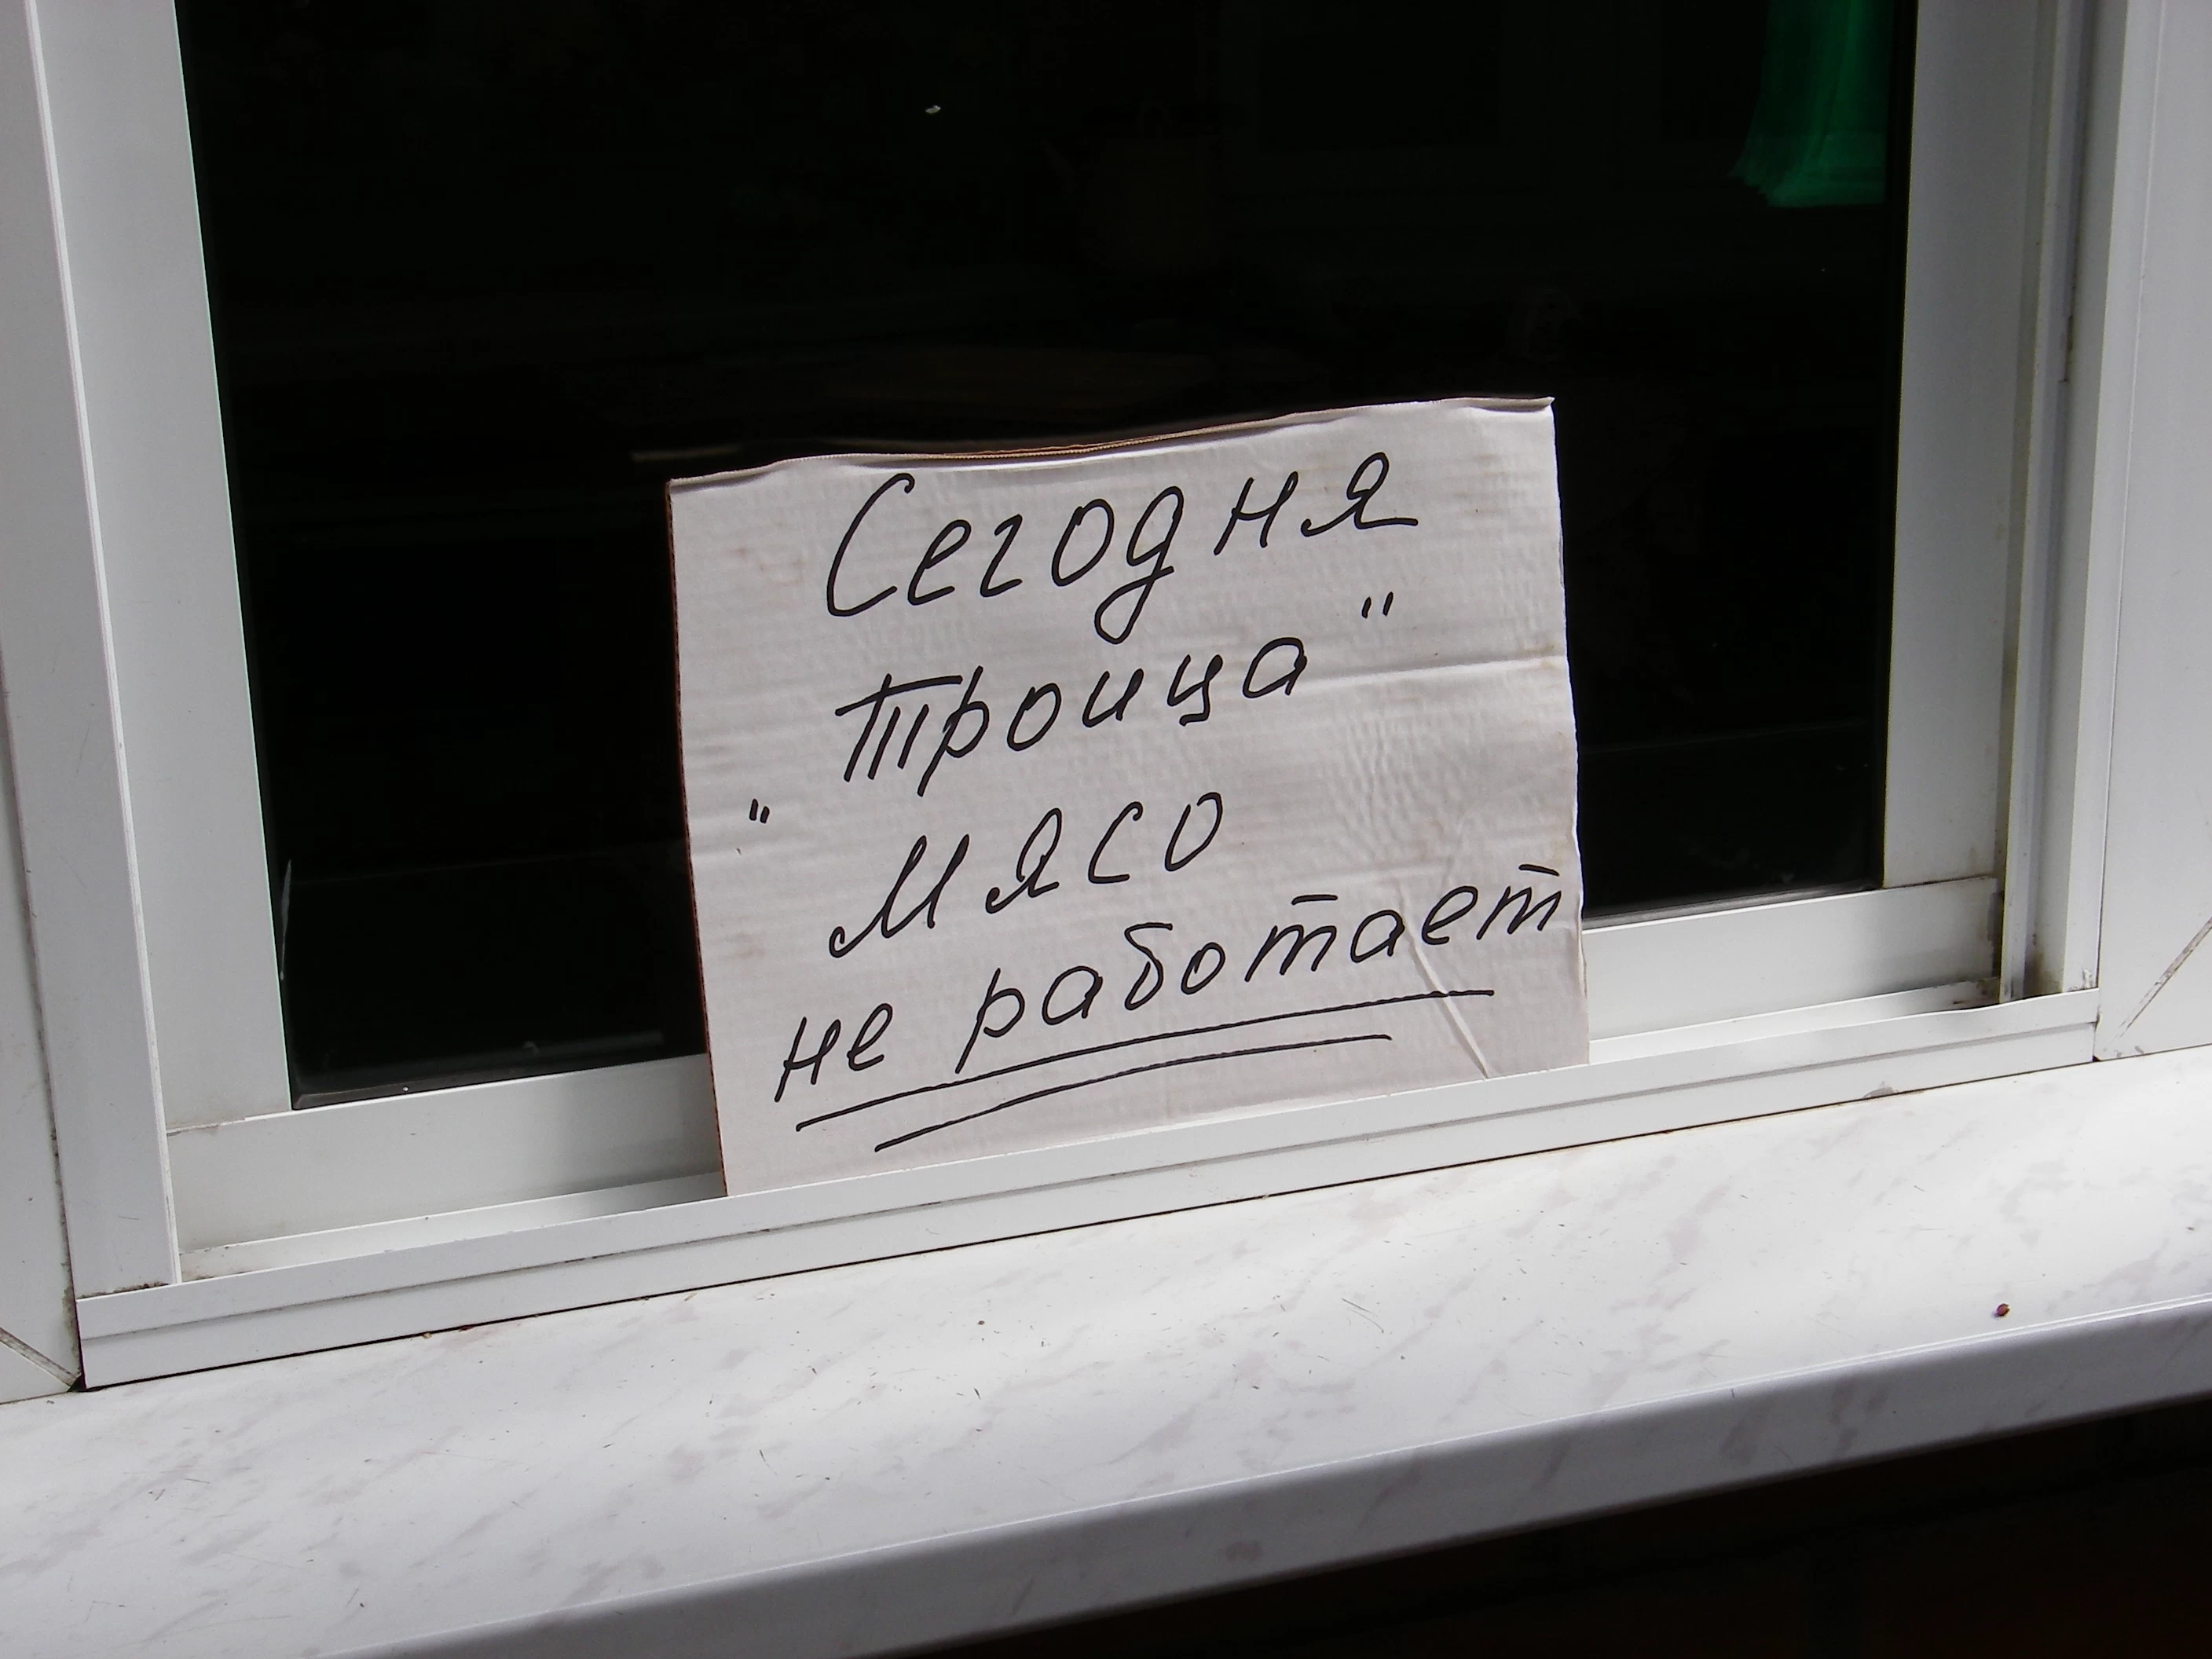 Сегодня
„Троица"
Мясо
не работает